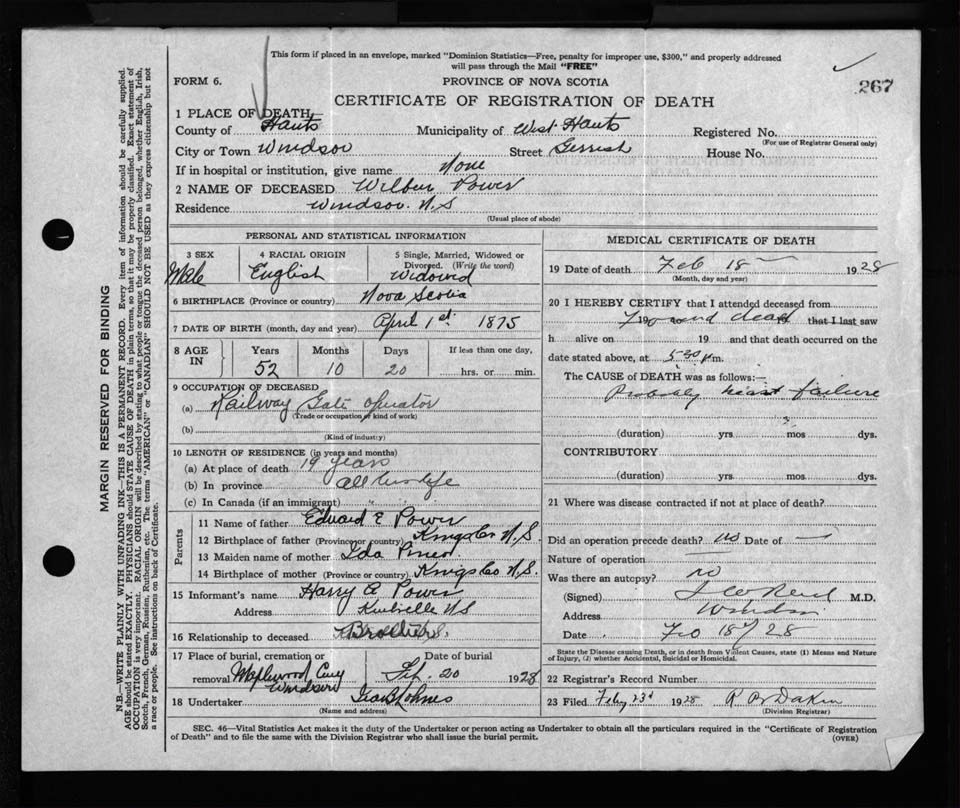 This form if placed in an envelope, marked "Dominion Statistics—Free, penalty for improper use, $300," and properly addressed
will pass through the Mail "FREE"
FORM 6.
PROVINCE OF NOVA SCOTIA
267
CERTIFICATE OF REGISTRATION OF DEATH
1 PLACE OF DEATH
County of Hants Municipality of West Hants Registered No.
(For use of Registrar General only)
City or Town Windsor Street Gerrish House No.
If in hospital or institution, give name None
2 NAME OF DECEASED Wilbur Power
Residence Windsor. N.S
(Usual place of abode)
PERSONAL AND STATISTICAL INFORMATION
3 SEX 4 RACIAL ORIGIN 5 Single, Married, Widowed or
Divorced. (Write the word)
Male English Widowed
6 BIRTHPLACE (Province or country) Nova Scotia
7 DATE OF BIRTH (month, day and year) April 1st 1875
8 AGE IN Years Months Days If less than one day,
52 10 20 hrs. or min.
9 OCCUPATION OF DECEASED
(a) Railway Gate Operator
(Trade or occupation or kind of work)
(b)
(Kind of industry)
10 LENGTH OF RESIDENCE (in years and months)
(a) At place of death 19 years
(b) In province all his life
(c) In Canada (if an immigrant) " "
Parents
11 Name of father Edward E Power
12 Birthplace of father (Province or country) Kings Co N.S.
13 Maiden name of mother Ida Pineo
14 Birthplace of mother (Province or country) Kings Co N.S.
15 Informant's name Harry A. Power
Address NS
16 Relationship to deceased Brother
17 Place of burial, cremation or
removal Maplewood Cemy
Windsor
Date of burial
Feb. 20 1928
18 Undertaker
(Name and address)
MEDICAL CERTIFICATE OF DEATH
19 Date of death Feb 18 1928
(Month, day and year)
20 I HEREBY CERTIFY that I attended deceased from
19 Found dead that I last saw
h alive on 19 and that death occurred on the
date stated above, at 5.30 p.m.
The CAUSE of DEATH was as follows:
Probably heart failure
(duration) yrs. mos dys.
CONTRIBUTORY
(duration) yrs. mos. dys.
21 Where was disease contracted if not at place of death?
Did an operation precede death? no Date of —
Nature of operation
Was there an autopsy? no
(Signed) M.D.
Address Windsor
Date Feb 18 / 28
State the Disease causing Death, or in death from Violent Causes, state (1) Means and Nature
of Injury, (2) whether Accidental, Suicidal or Homicidal.
22 Registrar's Record Number
23 Filed Feby 23d 1928 R B Dakin
(Division Registrar)
SEC. 46—Vital Statistics Act makes it the duty of the Undertaker or person acting as Undertaker to obtain all the particulars required in the "Certificate of Registration
of Death" and to file the same with the Division Registrar who shall issue the burial permit. (OVER)
MARGIN RESERVED FOR BINDING
N.B.—WRITE PLAINLY WITH UNFADING INK—THIS IS A PERMANENT RECORD. Every item of information should be carefully supplied.
AGE should be stated EXACTLY. PHYSICIANS should STATE CAUSE OF DEATH in plain terms, so that it may be properly classified. Exact statement of
OCCUPATION is very important. RACIAL ORIGIN will be described by stating to what people or tongue the deceased person belonged, whether English, Irish,
Scotch, French, German, Russian, Ruthenian, etc. The terms "AMERICAN" or "CANADIAN" SHOULD NOT BE USED as they express citizenship but not
a race or people. See instructions on back of Certificate.